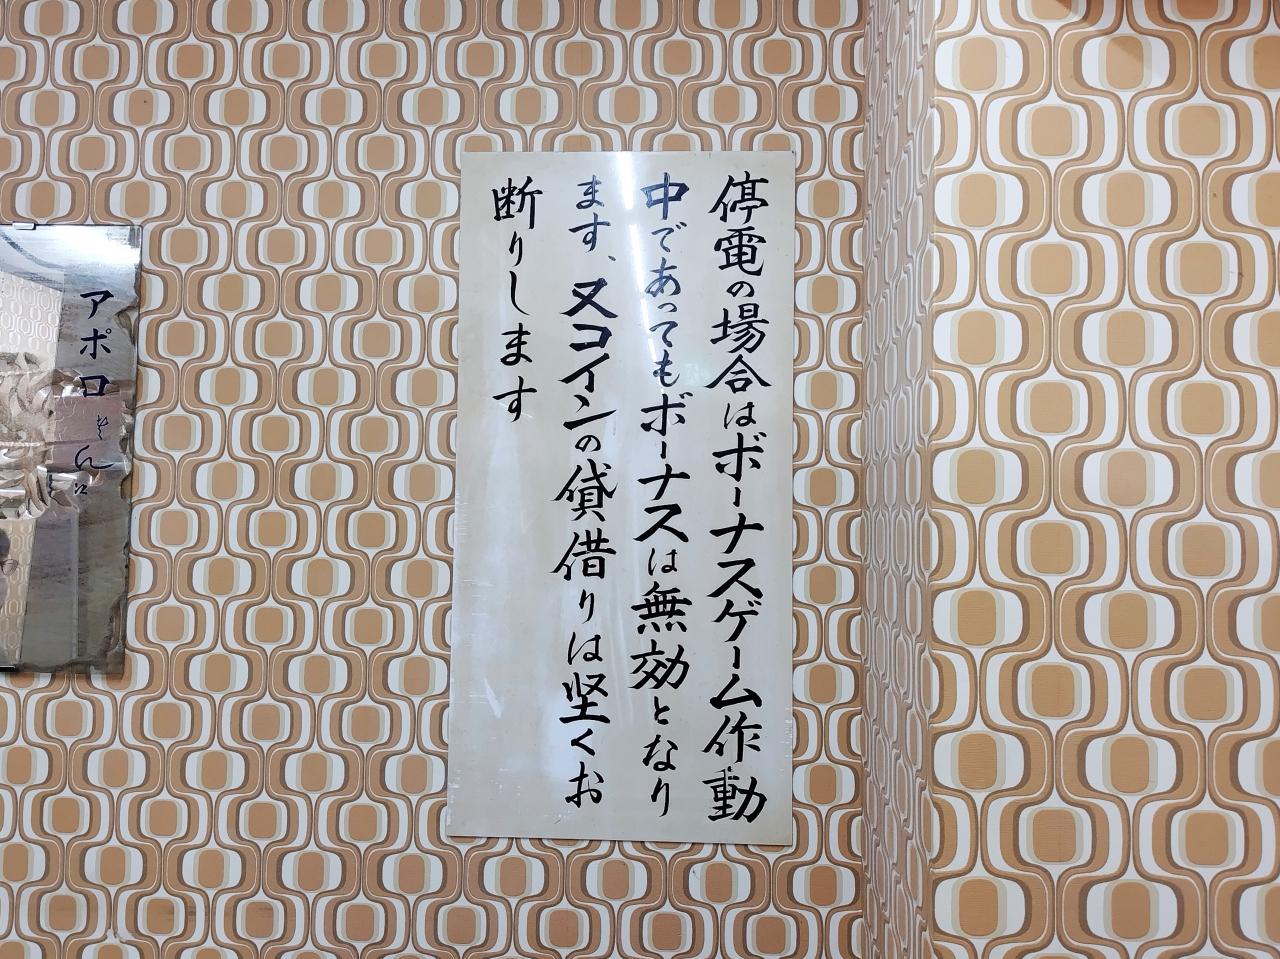 停電の場合はボーナスゲーム作動
中であってもボーナスは無効となり
ます、又コインの貸借りは堅くお
断りします
アポロ